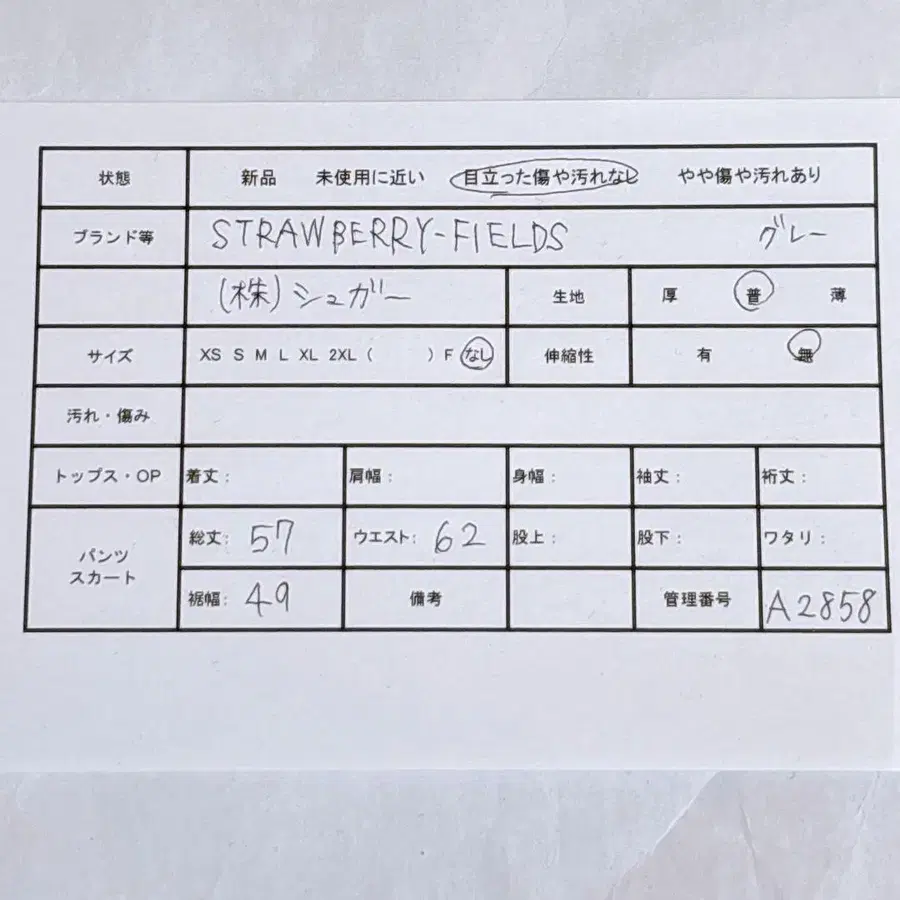 状態 新品 未使用に近い 目立った傷や汚れなし やや傷や汚れあり
ブランド等 STRAWBERRY-FIELDS グレー
(株)シュガー 生地 厚 普 薄
サイズ XS S M L XL 2XL ( ) F なし 伸縮性 有 無
汚れ・傷み
トップス・OP 着丈: 肩幅: 身幅: 袖丈: 裄丈:
パンツ スカート 総丈: 57 ウエスト: 62 股上: 股下: ワタリ:
裾幅: 49 備考 管理番号 A2858